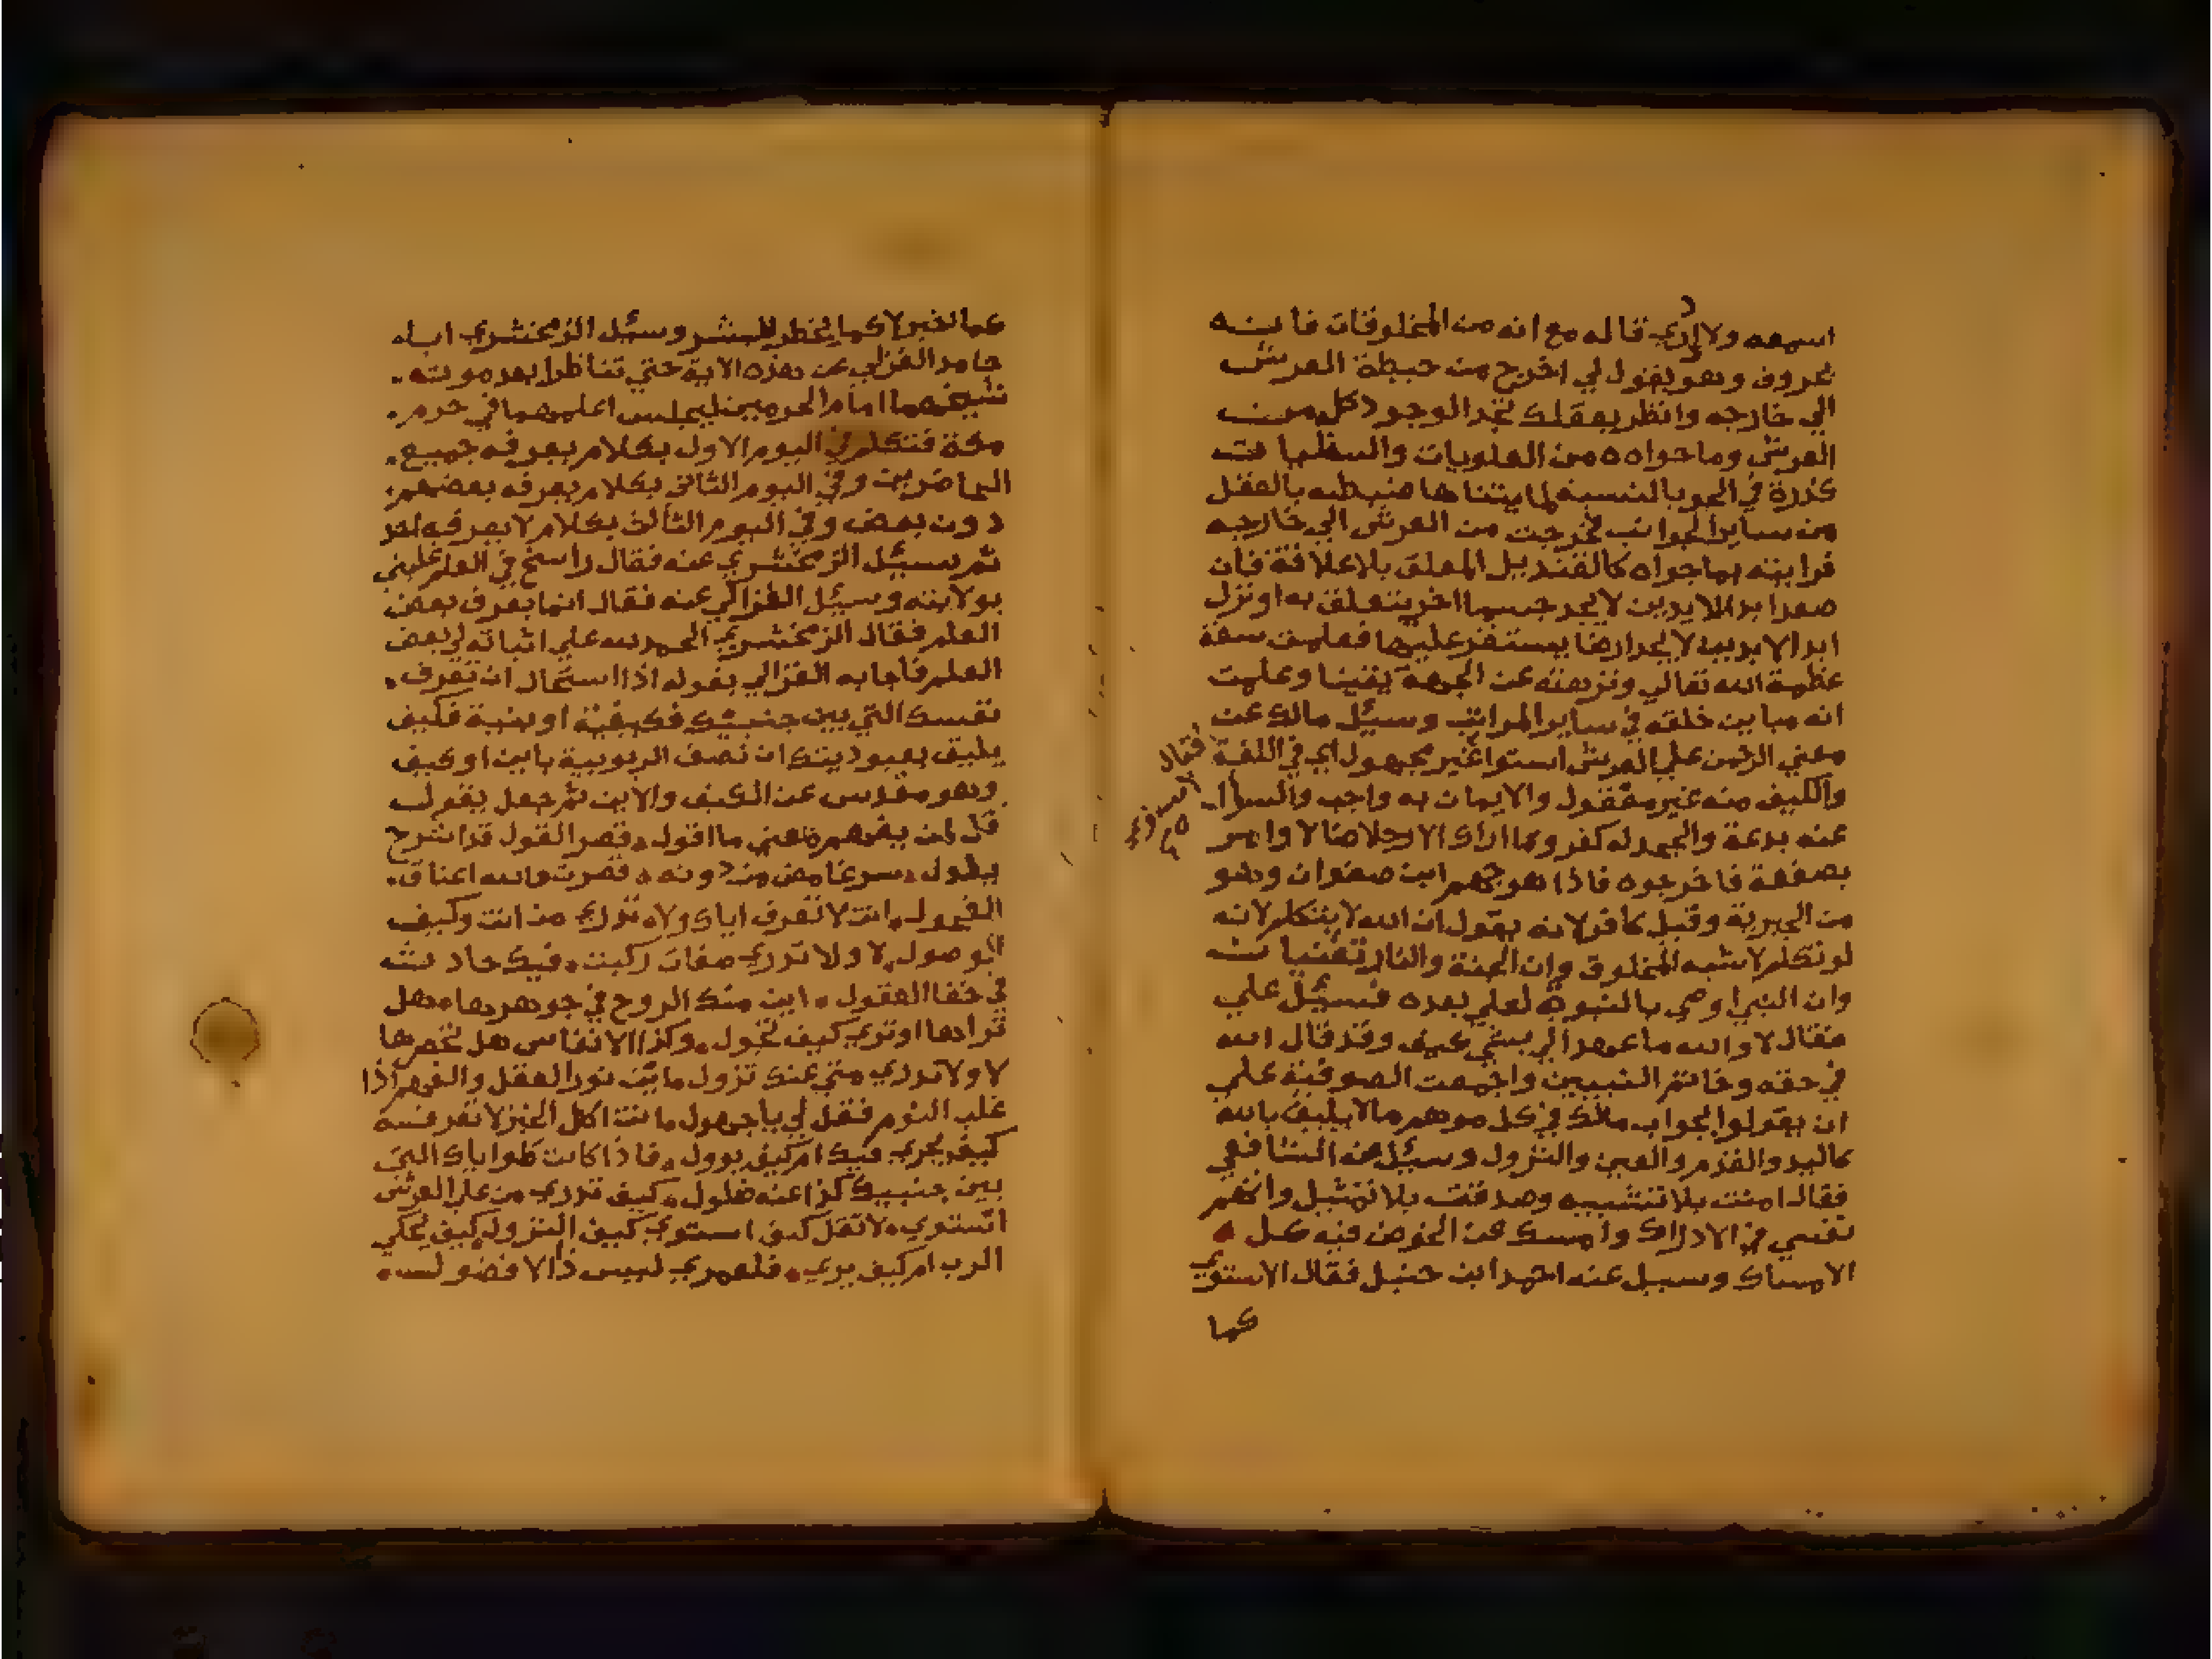 اسمعه ولا ادري قاله مع انه من المخلوقات فانه
بحروف وهو يقول لي اخرج من حيطة العرش
الي خارجه وانظر بعقلك تجد الوجود كل من
العرش وما حواه من العلويات والسفليات
كذرة في الجو بالنسبة لما يتناها ضبطه بالعقل
من ساير الجوانب فخرجت من العرش الي خارجه
فرايته بما حواه كالقنديل المعلق بلا علاقة فان
صعد ابد الابدين لا يجد جسما اخر يتعلق به او نزل
ابد الابدين لا يجد ارضا يستقر عليها فعلمت سعة
عظمة الله تعالي ونزهته عن الجهة يقينا وعلمت
انه مباين خلقه في ساير المراتب وسيل مالك عن
معني الرحمن علي العرش استوا غير مجهول اي في اللغة
فقال
والكيف منه غير معقول والايمان به واجب والسوال
عنه بدعة والجحد له كفر وما اراك الا رجلا ضالا وامر
بصفعة فاخرجوه فاذا هو جهم ابن صفوان وهو
من الجبرية وقيل كافر لانه يقول ان الله لا يتكلم لانه
لو تكلم لاشبه المخلوق وان الجنة والنار تفنيان
وان النبي اوصي بالنبوة لعلي بعده فسيل علي
فقال لا والله ما عهد الي بشي كيف وقد قال الله
في حقه وخاتم النبيين واجمعت الصوفية علي
ان يقولوا بجواب مالك في كل موهم ما لا يليق بالله
كاليد والقدم والعين والنزول وسيل عنه الشافعي
فقال امنت بلا تشبيه وصدقت بلا تمثيل واتهم
نفسي في الادراك وامسك عن الخوض فيه كل
الامساك وسيل عنه احمد ابن حنبل فقال الاستوي
كما
كما اخبر لا كما يخطر للبشر وسيل الزمخشري اباه
حامد الغزلي عن هذه الاية حتي تناظرا بعد موته
شيخهما امام الحرمين ليجلس اعلمهما في حرم
مكة فتكلم في اليوم الاول بكلام يعرفه جميع
الحاضرين وفي اليوم الثاني بكلام يعرفه بعضهم
دون بعض وفي اليوم الثالث بكلام لا يعرفه احد
ثم سيل الزمخشري عنه فقال راسخ في العلم
بولايته وسيل الغزالي عنه فقال انما يعرف بعض
العلم فقال الزمخشري الحمد لله علي اثباته لي بعض
العلم فاجابه الغزالي بقوله اذا استحال ان تعرف
نفسك التي بين جنبيك فكيفية او بنية فكيف
يليق بعبوديتك ان تصف الربوبية باين او كيف
وهو مقدس عن الكيف والاين ثم جعل يقول
قل لمن يفهم عني ما اقول قصر القول فذا شرح
يطول سر غامض من دونه قصرت والله اعناق
الفحول انت لا تعرف اياك ولا تدري من انت وكيف
الوصول لا ولا تدري صفات ركبت فيك حارت
في خفا العقول اين منك الروح في جوهرها هل
تراها او تري كيف تجول وكذا الانفاس هل تحصرها
لا ولا تدري متي عنك تزول ما بين نور العقل والفهم اذا
غلب النوم فقل لي يا جهول انت اكل الخبز لا تعرفه
كيف يجري فيك ام كيف يبول فاذا كانت طواياك التي
بين جنبيك كذا عنه ضلول كيف تدري من علي العرش
استوي لا تقل كيف استوي كيف النزول كيف يحكي
الرب ام كيف يري فلعمري ليس ذا الا فضول